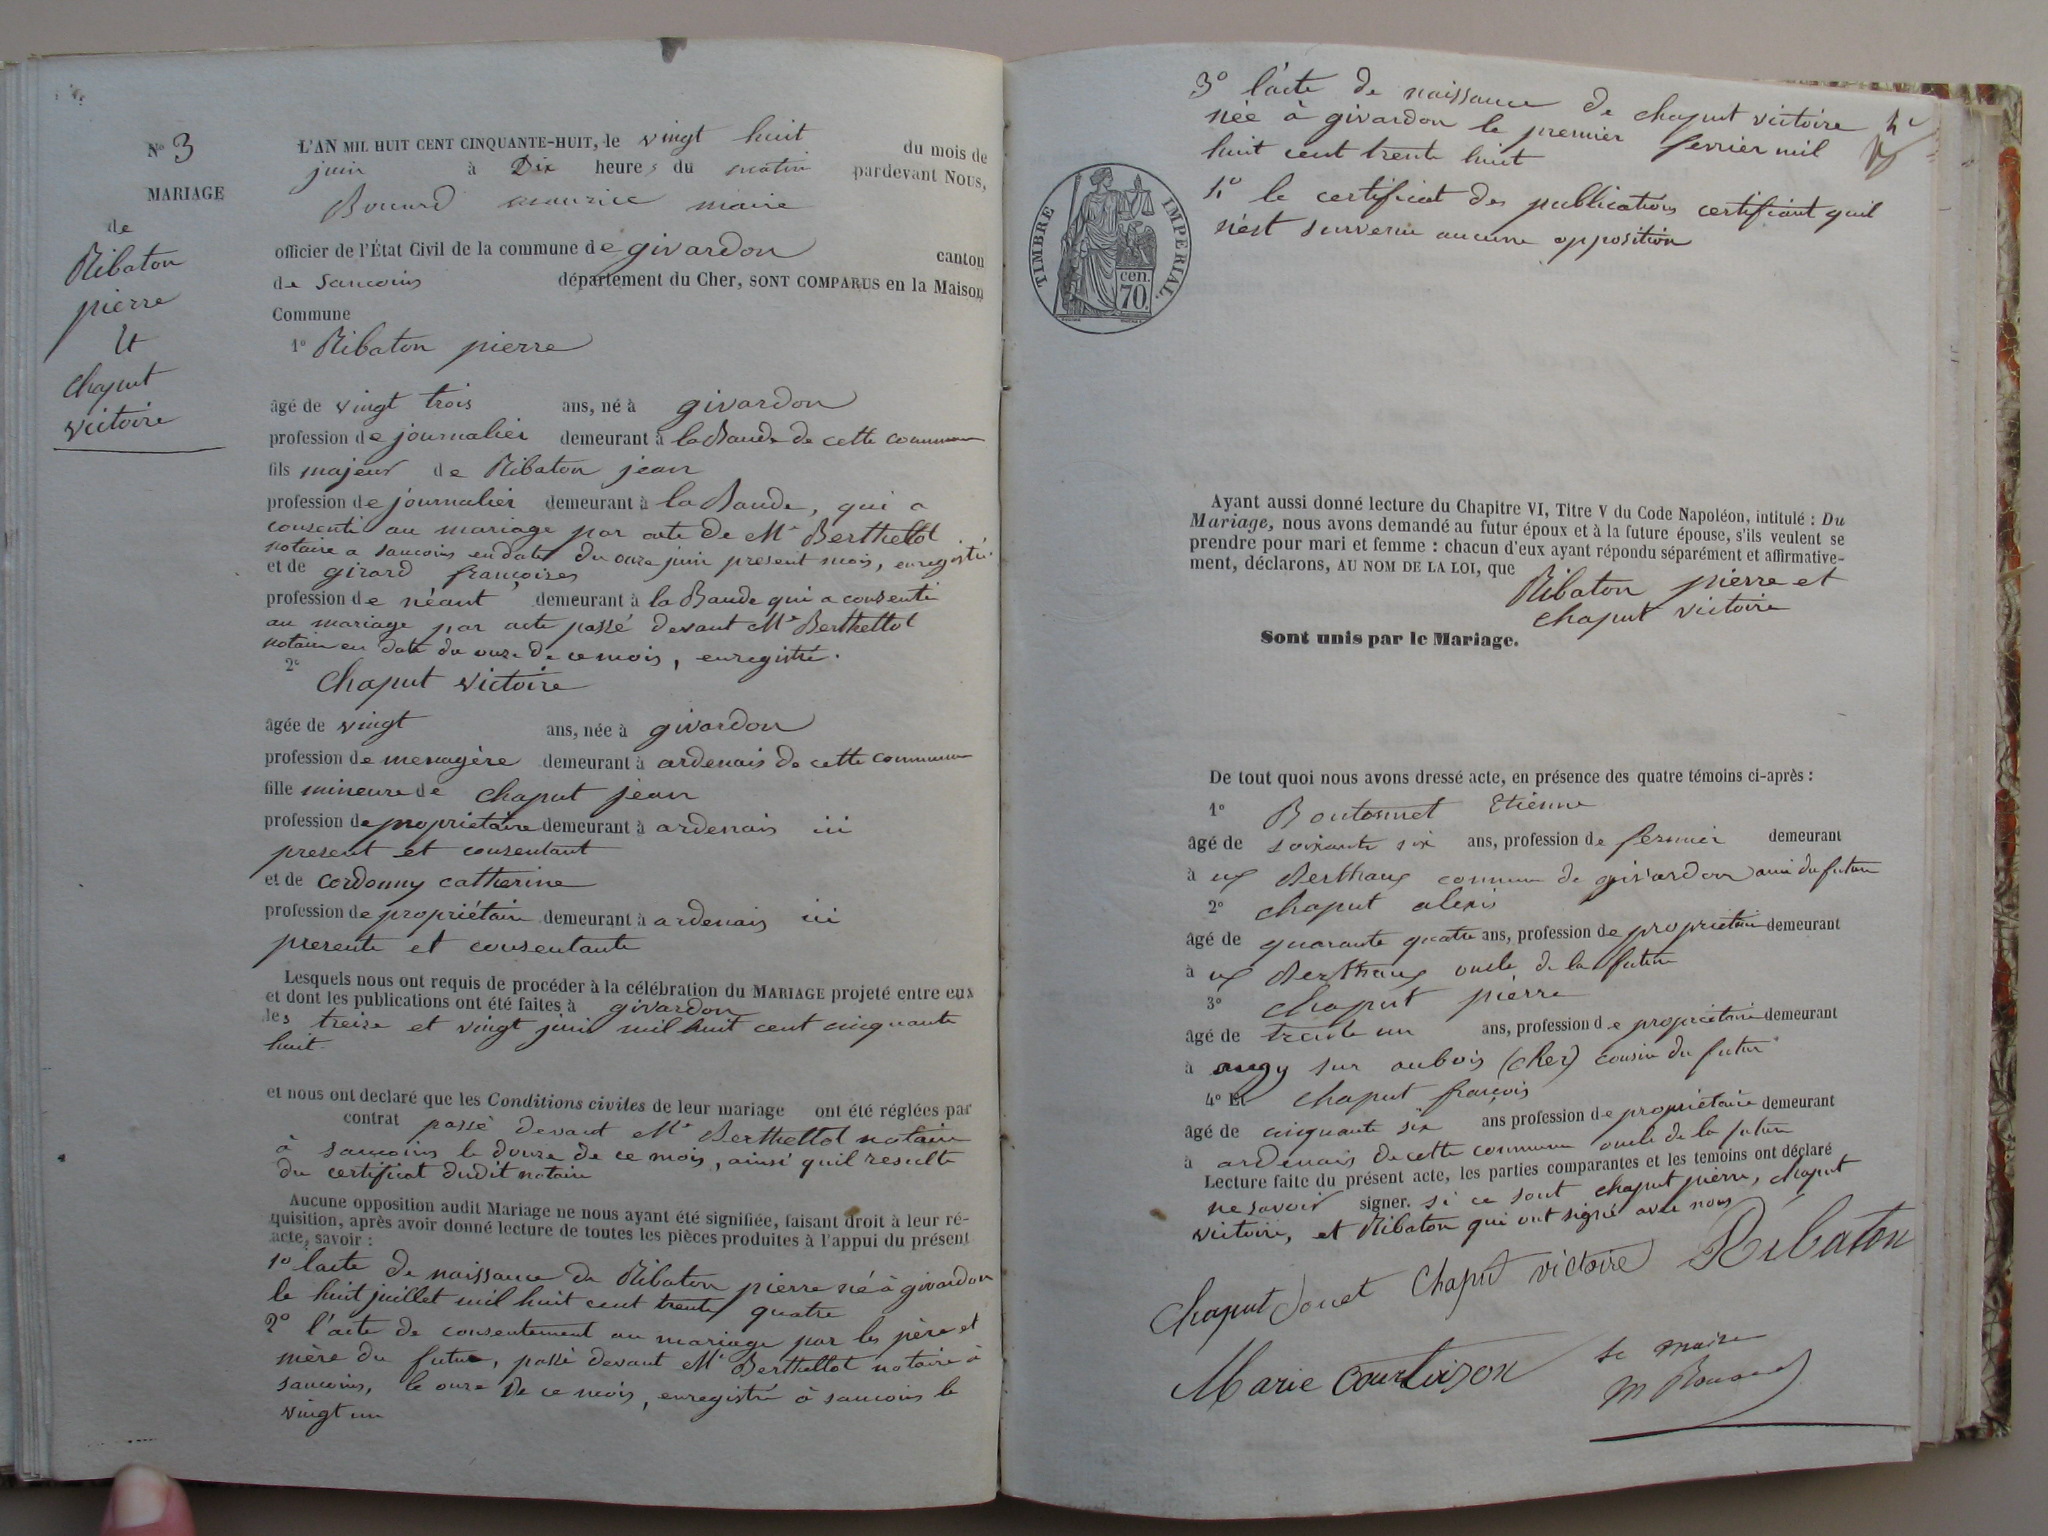 N° 3
MARIAGE
de
Ribaton
pierre
Et
chaput
victoire
L'AN MIL HUIT CENT CINQUANTE-HUIT, le vingt huit du mois de
juin à Dix heures du matin pardevant NOUS,
Bouard maurice maire
officier de l'État Civil de la commune de givardon canton
de Sancoins département du Cher, SONT COMPARUS en la Maison
Commune
1° Ribaton pierre
âgé de vingt trois ans, né à givardon
profession de journalier demeurant à la Baude de cette commune
fils majeur de Ribaton jean
profession de journalier demeurant à la Baude, qui a
consenti au mariage par acte de Me Berthellot
notaire a sancoins en date du onze juin present mois, enregistré
et de girard françoises
profession de néant demeurant à la Baude qui a consenti
au mariage par acte passé devant Me Berthellot
notaire en date du onze de ce mois, enregistré.
2°
Chaput victoire
âgée de vingt ans, née à givardon
profession de menagère demeurant à ardenais de cette commune
fille mineure de chaput jean
profession de propriétaire demeurant à ardenais ici
present et consentant
et de cordonny catherine
profession de propriétaire demeurant à ardenais ici
presente et consentante
Lesquels nous ont requis de procéder à la célébration du MARIAGE projeté entre eux
et dont les publications ont été faites à givardon
les treize et vingt juin mil huit cent cinquante
huit.
et nous ont declaré que les Conditions civiles de leur mariage ont été réglées par
contrat passé devant Me Berthellot notaire
à sancoins le douze de ce mois, ainsi quil resulte
du certificat dudit notaire
Aucune opposition audit Mariage ne nous ayant été signifiée, faisant droit à leur ré-
quisition, après avoir donné lecture de toutes les pièces produites à l'appui du présent
acte, savoir :
1° lacte de naissance de Ribaton pierre né à givardon
le huit juillet mil huit cent trente quatre
2° l'acte de consentement au mariage par les père et
mère du futur, passé devant Me Berthellot notaire à
sancoins, le onze de ce mois, enregistré à sancoins le
vingt un
3° l'acte de naissance de chaput victoire
née à givardon le premier fevrier mil
huit cent trente huit
4° le certificat des publications certifiant quil
n'est survenu aucune opposition
TIMBRE IMPERIAL.
cen.
70.
Ayant aussi donné lecture du Chapitre VI, Titre V du Code Napoléon, intitulé : Du
Mariage, nous avons demandé au futur époux et à la future épouse, s'ils veulent se
prendre pour mari et femme : chacun d'eux ayant répondu séparément et affirmative-
ment, déclarons, AU NOM DE LA LOI, que Ribaton pierre et
chaput victoire
Sont unis par le Mariage.
De tout quoi nous avons dressé acte, en présence des quatre témoins ci-après :
1° Boutonnet Etienne
âgé de soixante six ans, profession de fermier demeurant
à ux Berthaux commune de givardon ami du futur
2° chaput alexis
âgé de quarante quatre ans, profession de propriétaire demeurant
à ux Berthaux oncle de la future
3° chaput pierre
âgé de trente un ans, profession de propriétaire demeurant
à augy sur aubois (cher) cousin du futur
4° Et chaput françois
âgé de cinquante six ans profession de propriétaire demeurant
à ardenais de cette commune oncle de la future
Lecture faite du présent acte, les parties comparantes et les temoins ont déclaré
ne savoir signer. si ce sont chaput pierre, chaput
victoire, et Ribaton qui ont signé avec nous
Chaput Jouet Chaput victoire Ribaton
Marie courtizon le maire
M Bouard